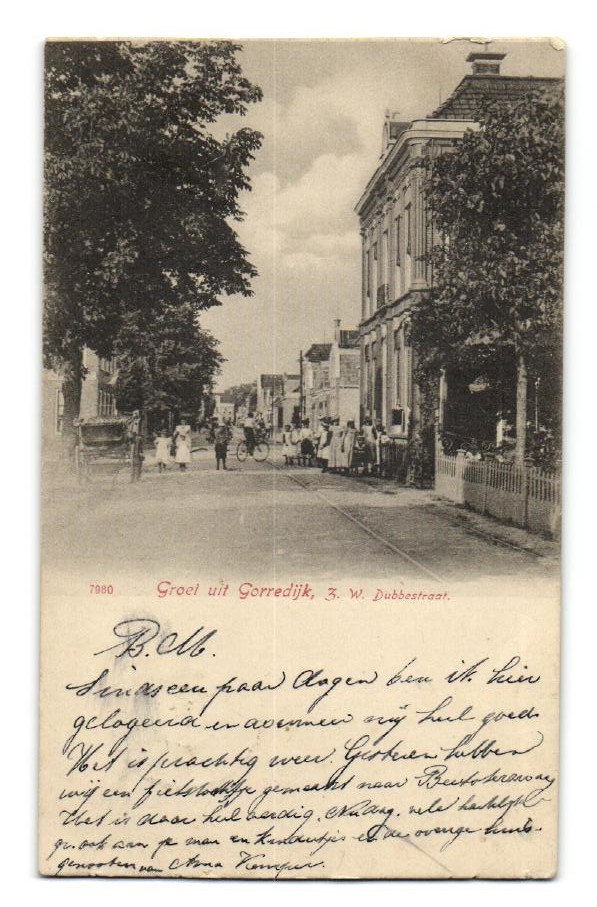 7980 Groet uit Gorredijk, Z. W. Dubbestraat.
B. M.
Sinds een paar dagen ben ik hier
gelogeerd en amuseer mij heel goed.
Het is prachtig weer. Gisteren hebben
wij een fietstochtje gemaakt naar
Het is daar heel aardig. Nu dag, vele hartelijke
gr. ook aan je man en kindertjes en de overige huis-
genooten van Anna Kemper.